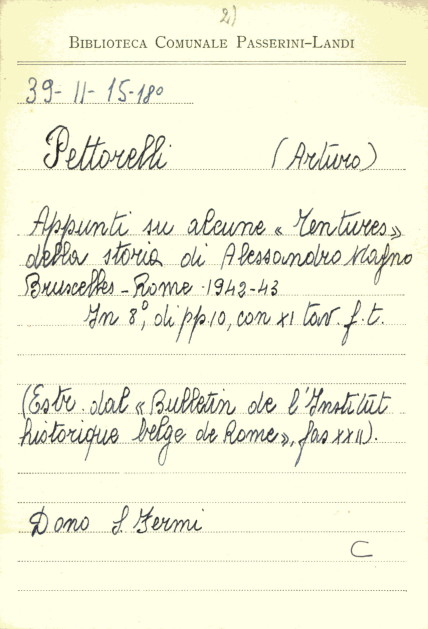 2)
BIBLIOTECA COMUNALE PASSERINI-LANDI
39-11-15-18°
Pettorelli (Arturo)
Appunti su alcune « Tentures»
della storia di Alessandro Magno
Bruxelles-Rome 1942-43
In 8°, di pp. 10, con XI tav. f. t.
(Estr. dal « Bulletin de l'Institut
historique belge de Rome», fas XXII).
Dono S. Fermi
C